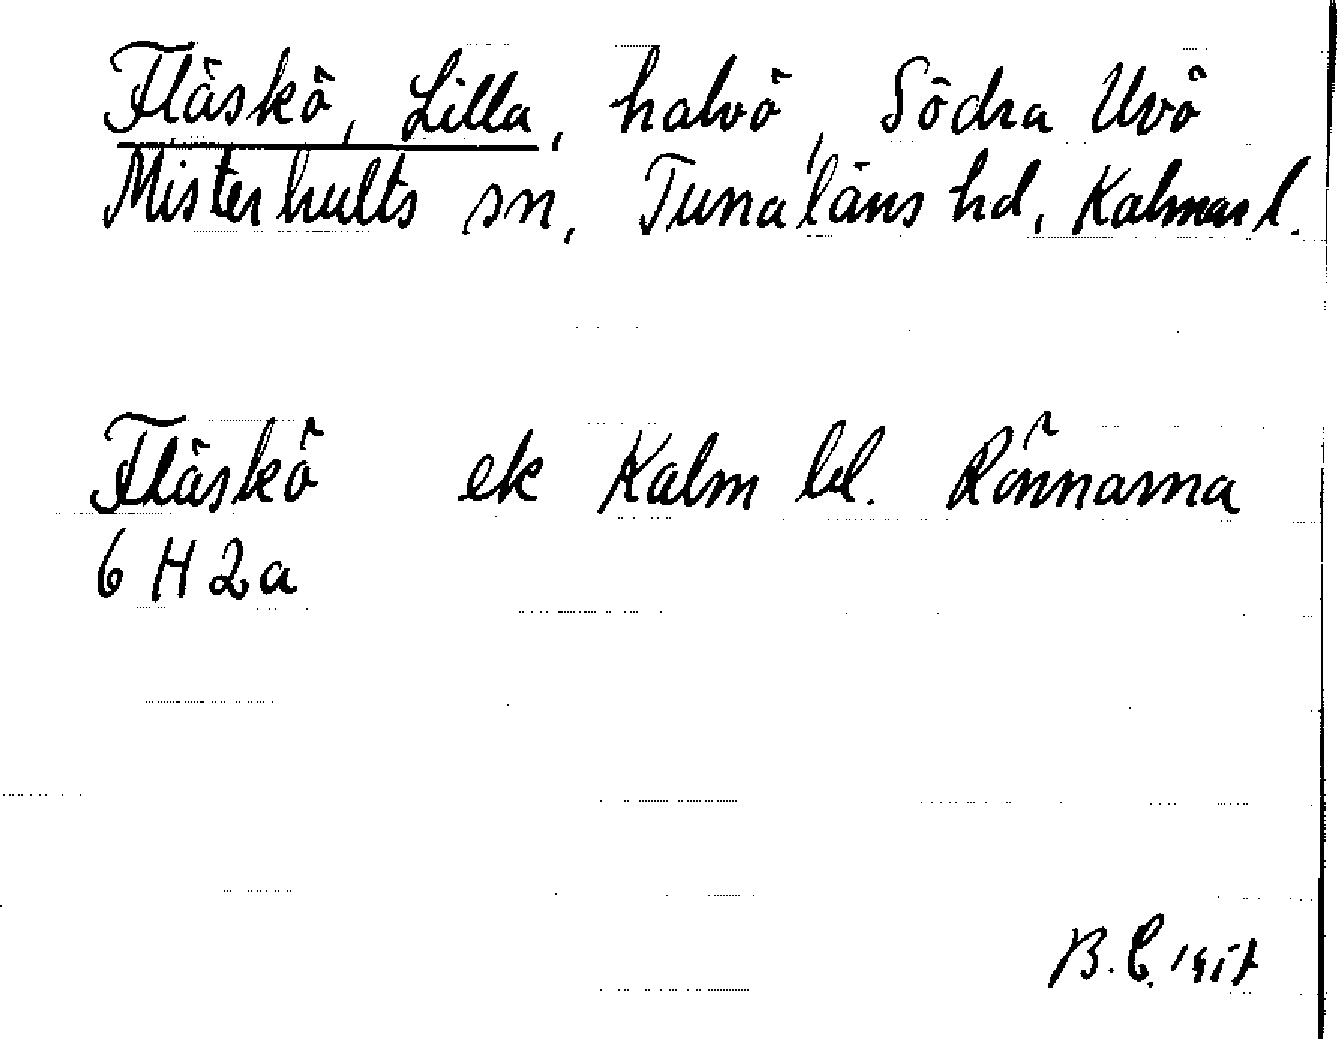 Fläskö, Lilla, halvö, Södra Uvö
Misterhults sn, Tunaläns hd, Kalmar l.
Fläskö ek Kalm bl. Rönnarna
6 H 2a
B.C.